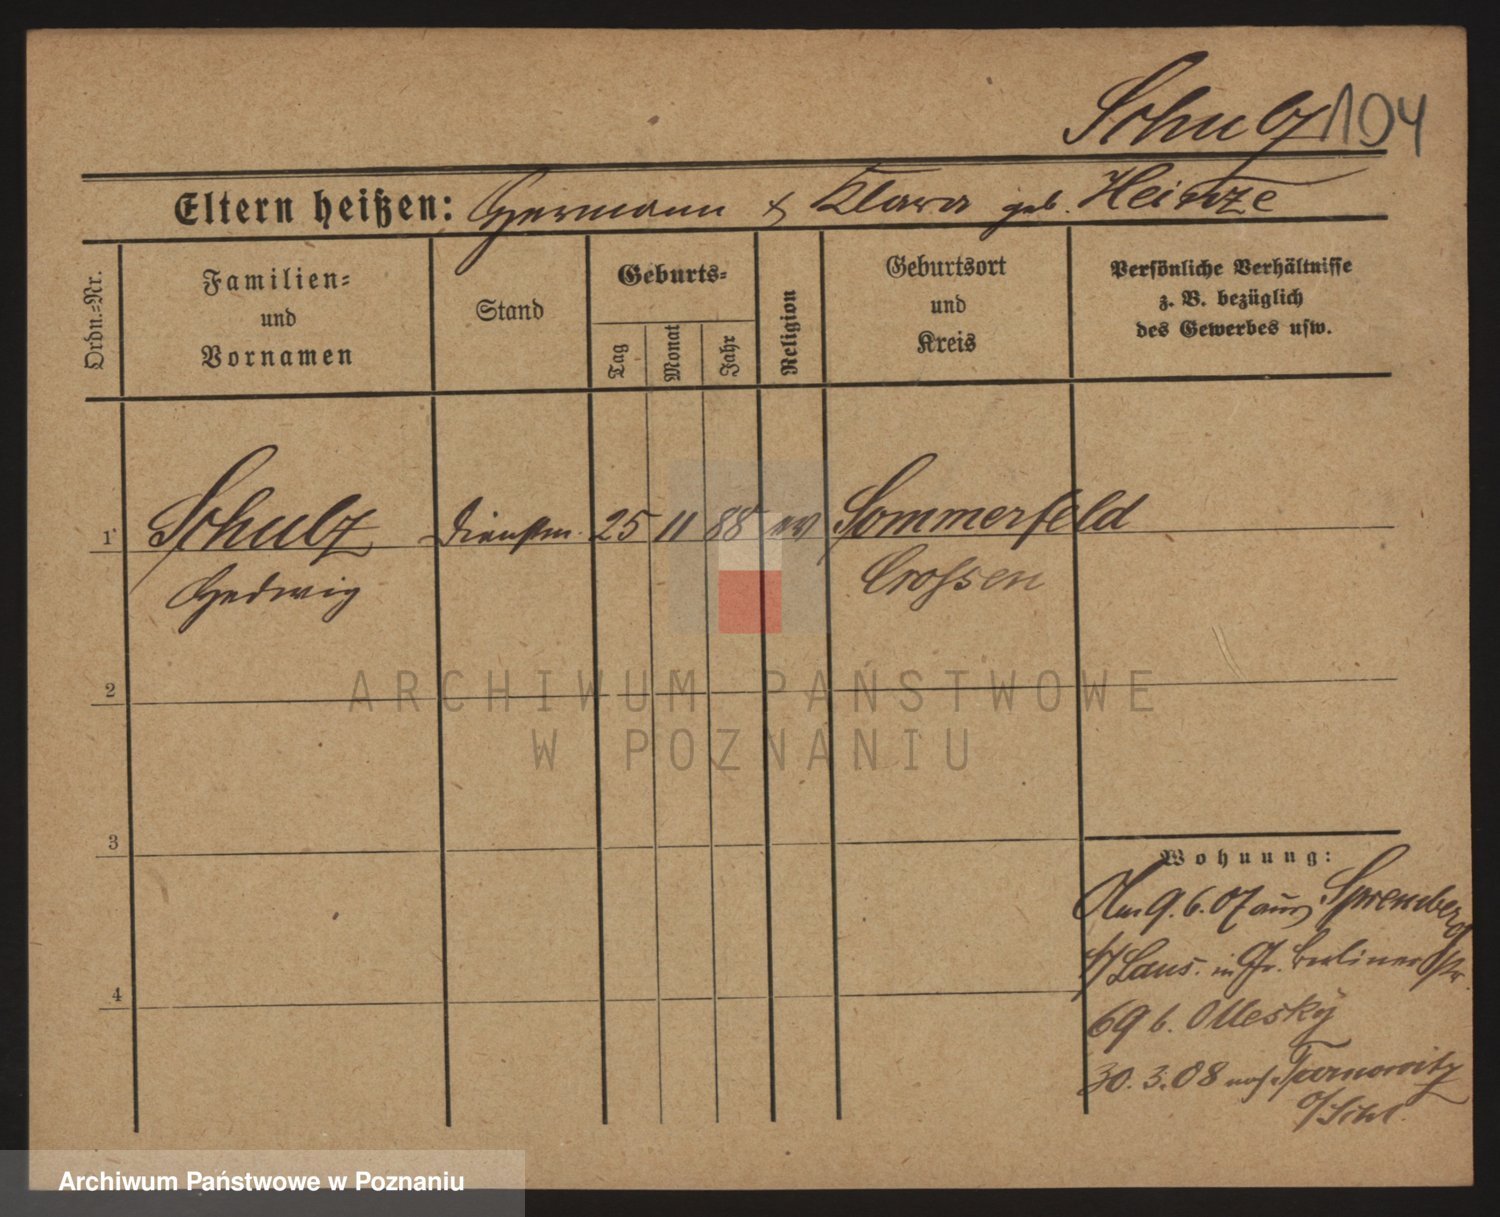 Schulz 194
Eltern heißen: Hermann & Klara geb. Heinze
Ordn.=Nr.
Familien=
und
Vornamen
Stand
Geburts=
Tag
Monat
Jahr
Religion
Geburtsort
und
Kreis
Persönliche Verhältnisse
z. B. bezüglich
des Gewerbes usw.
1 Schulz Dienstm. 25 11 88 ev Sommerfeld
Hedwig Crossen
2
3
4
Wohnung:
Am 9.6.07 aus Spremberg
Laus. in Gr. Berlinerstr.
69 b. Ollesky
30.3.08 nach Tarnowitz
o/Schl.
ARCHIWUM PAŃSTWOWE
W POZNANIU
Archiwum Państwowe w Poznaniu